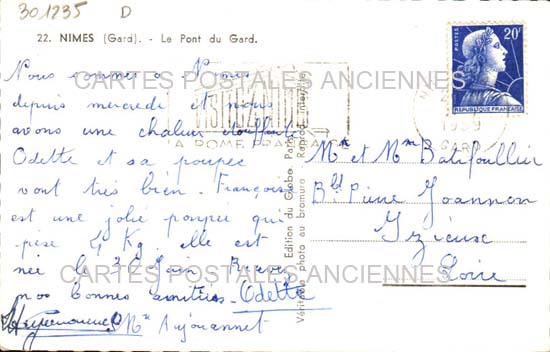 301235 D
22. NIMES (Gard). - Le Pont du Gard.
Nous sommes a Nimes
depuis mercredi et nous
avons une chaleur étouffante
Odette et sa poupee
vont très bien. Françoise
est une jolie poupee qui
pèse 4 Kg. elle est
née le 3 Juin
nos bonnes amitiés. Odette
Mme Anjouannet
Edition du Globe, Paris
Véritable photo au bromure - Reprod. interdite
VISITEZ NIMES
LA ROME FRANÇAISE
POSTES 20F
REPUBLIQUE FRANÇAISE
1959
GARD
Mr et Mme Batifoullier
Bld Pierre Joannon
Izieux
Loire
CARTES POSTALES ANCIENNES
CARTES POSTALES ANCIENNES